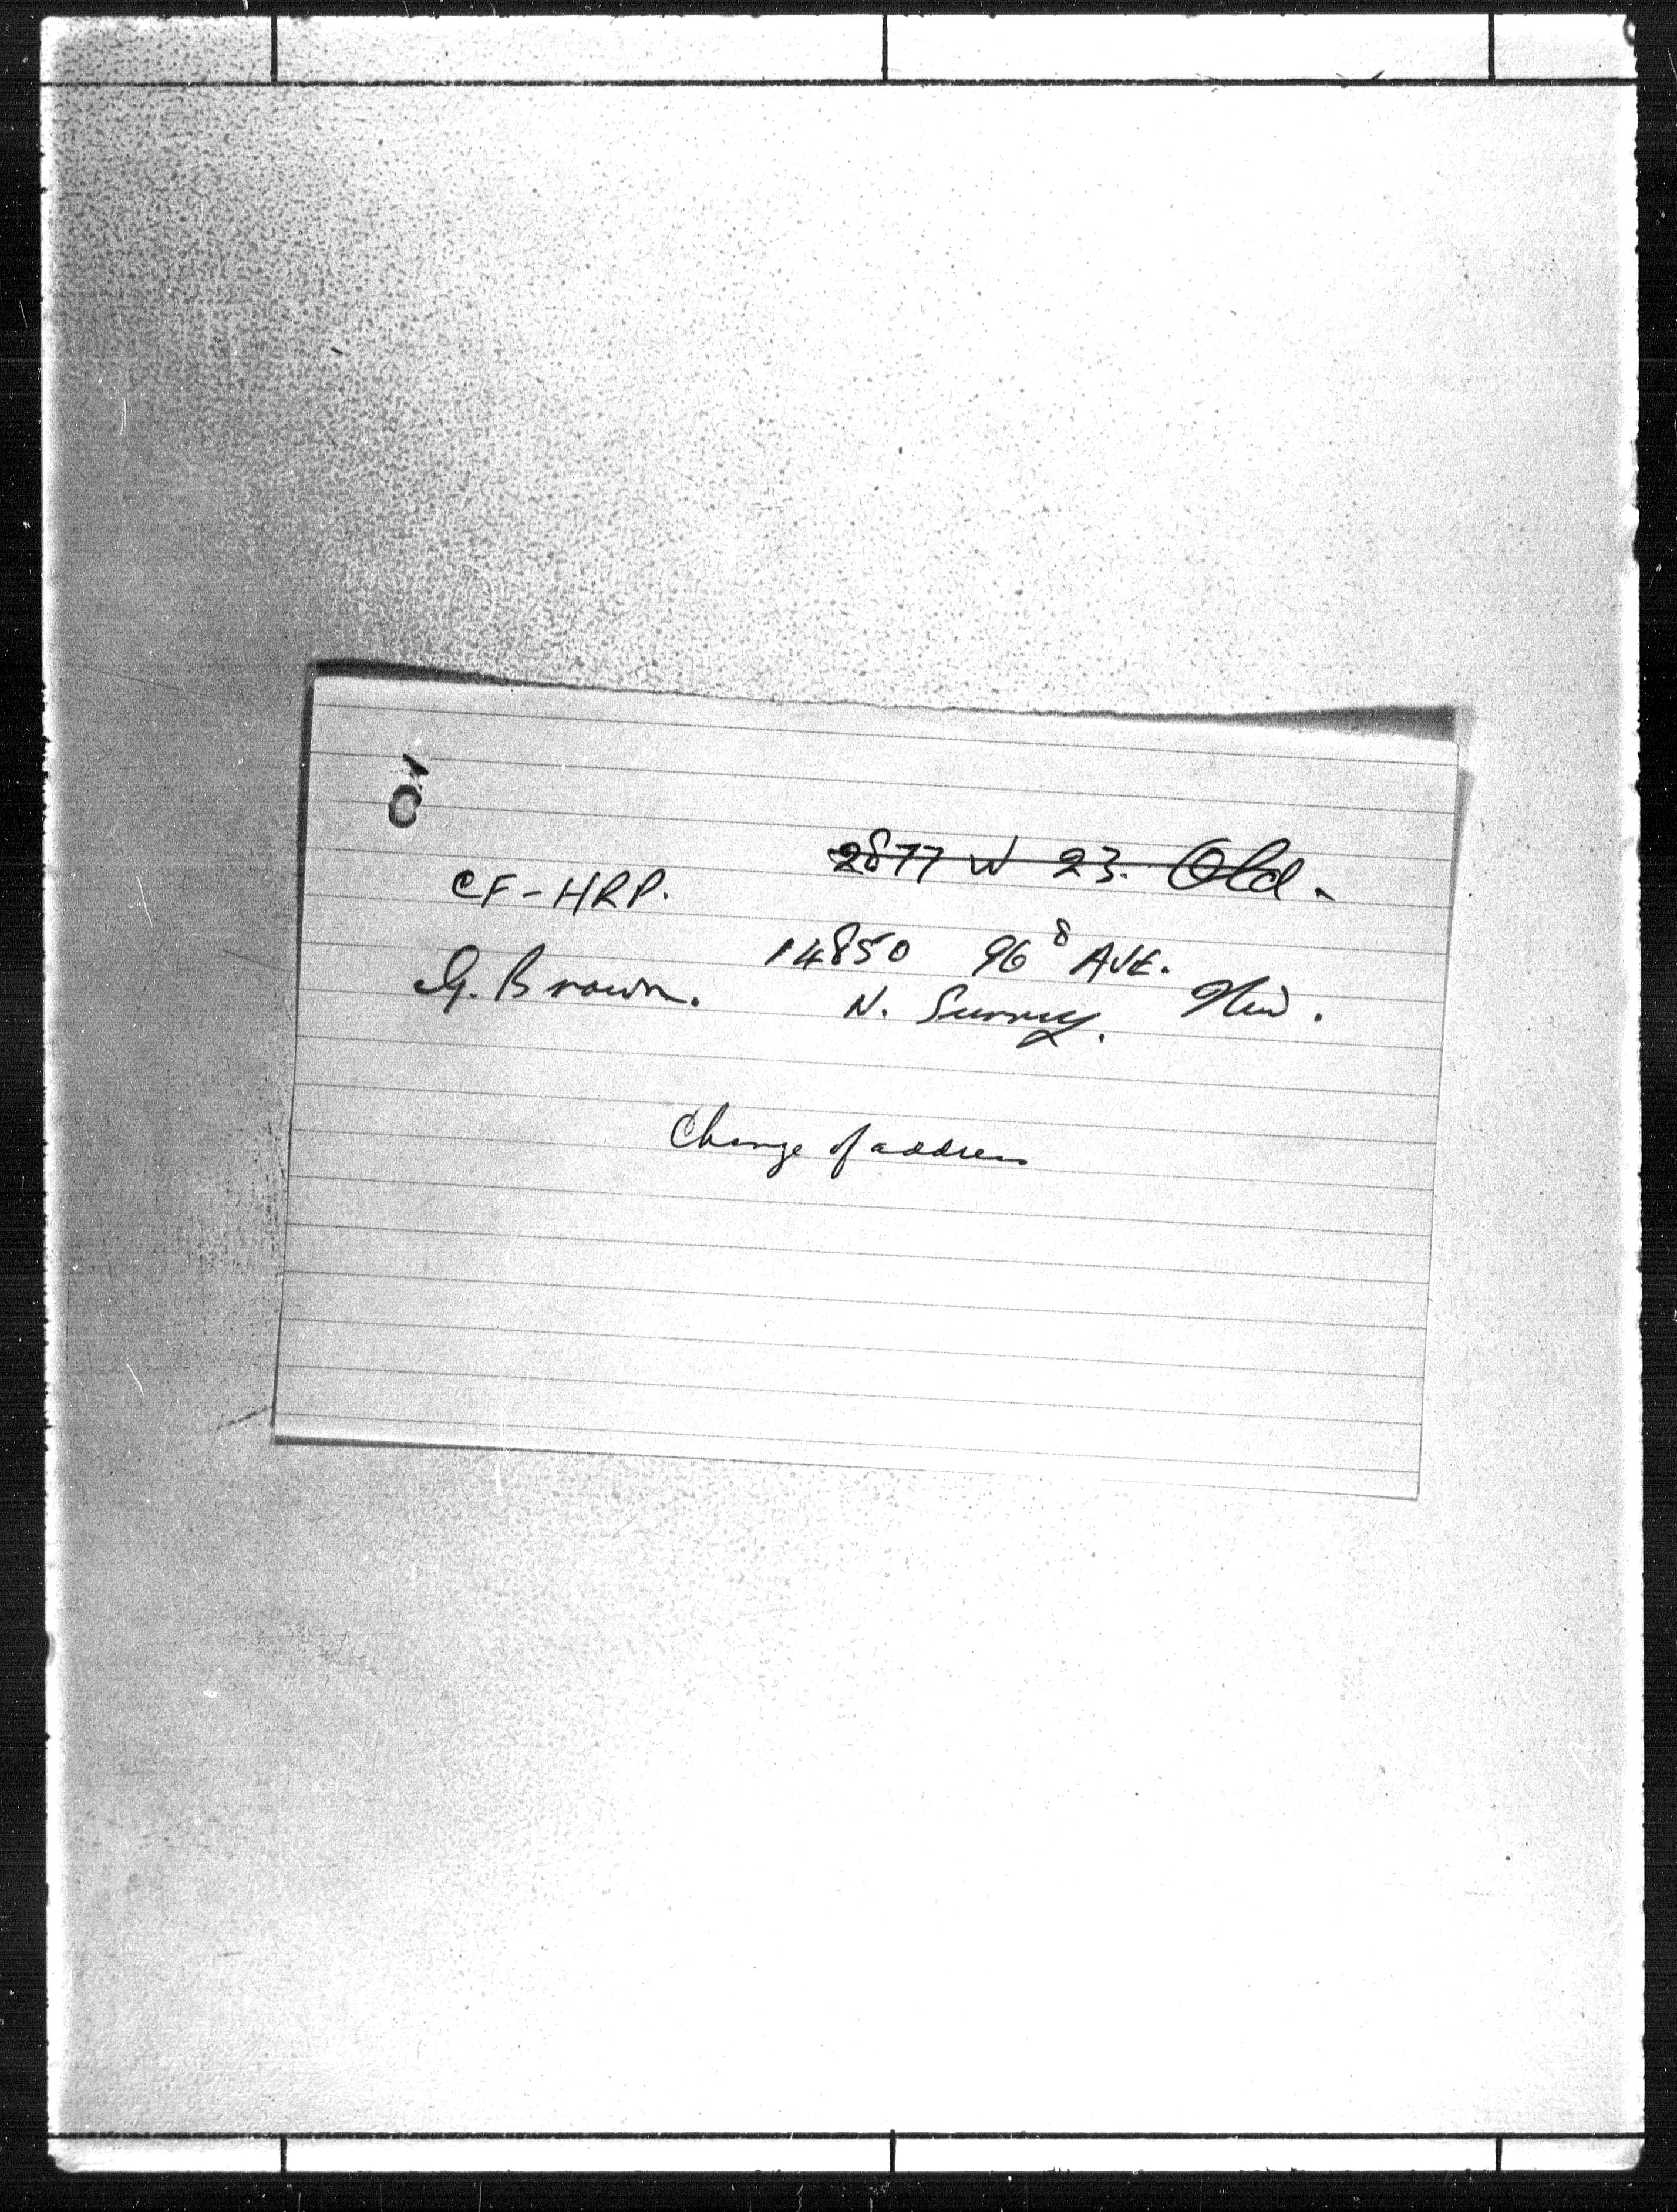 2877 W 23. Old.
CF-HRP.
14850 96 Ave.
G. Brown. N. Surrey. New.
Change of address